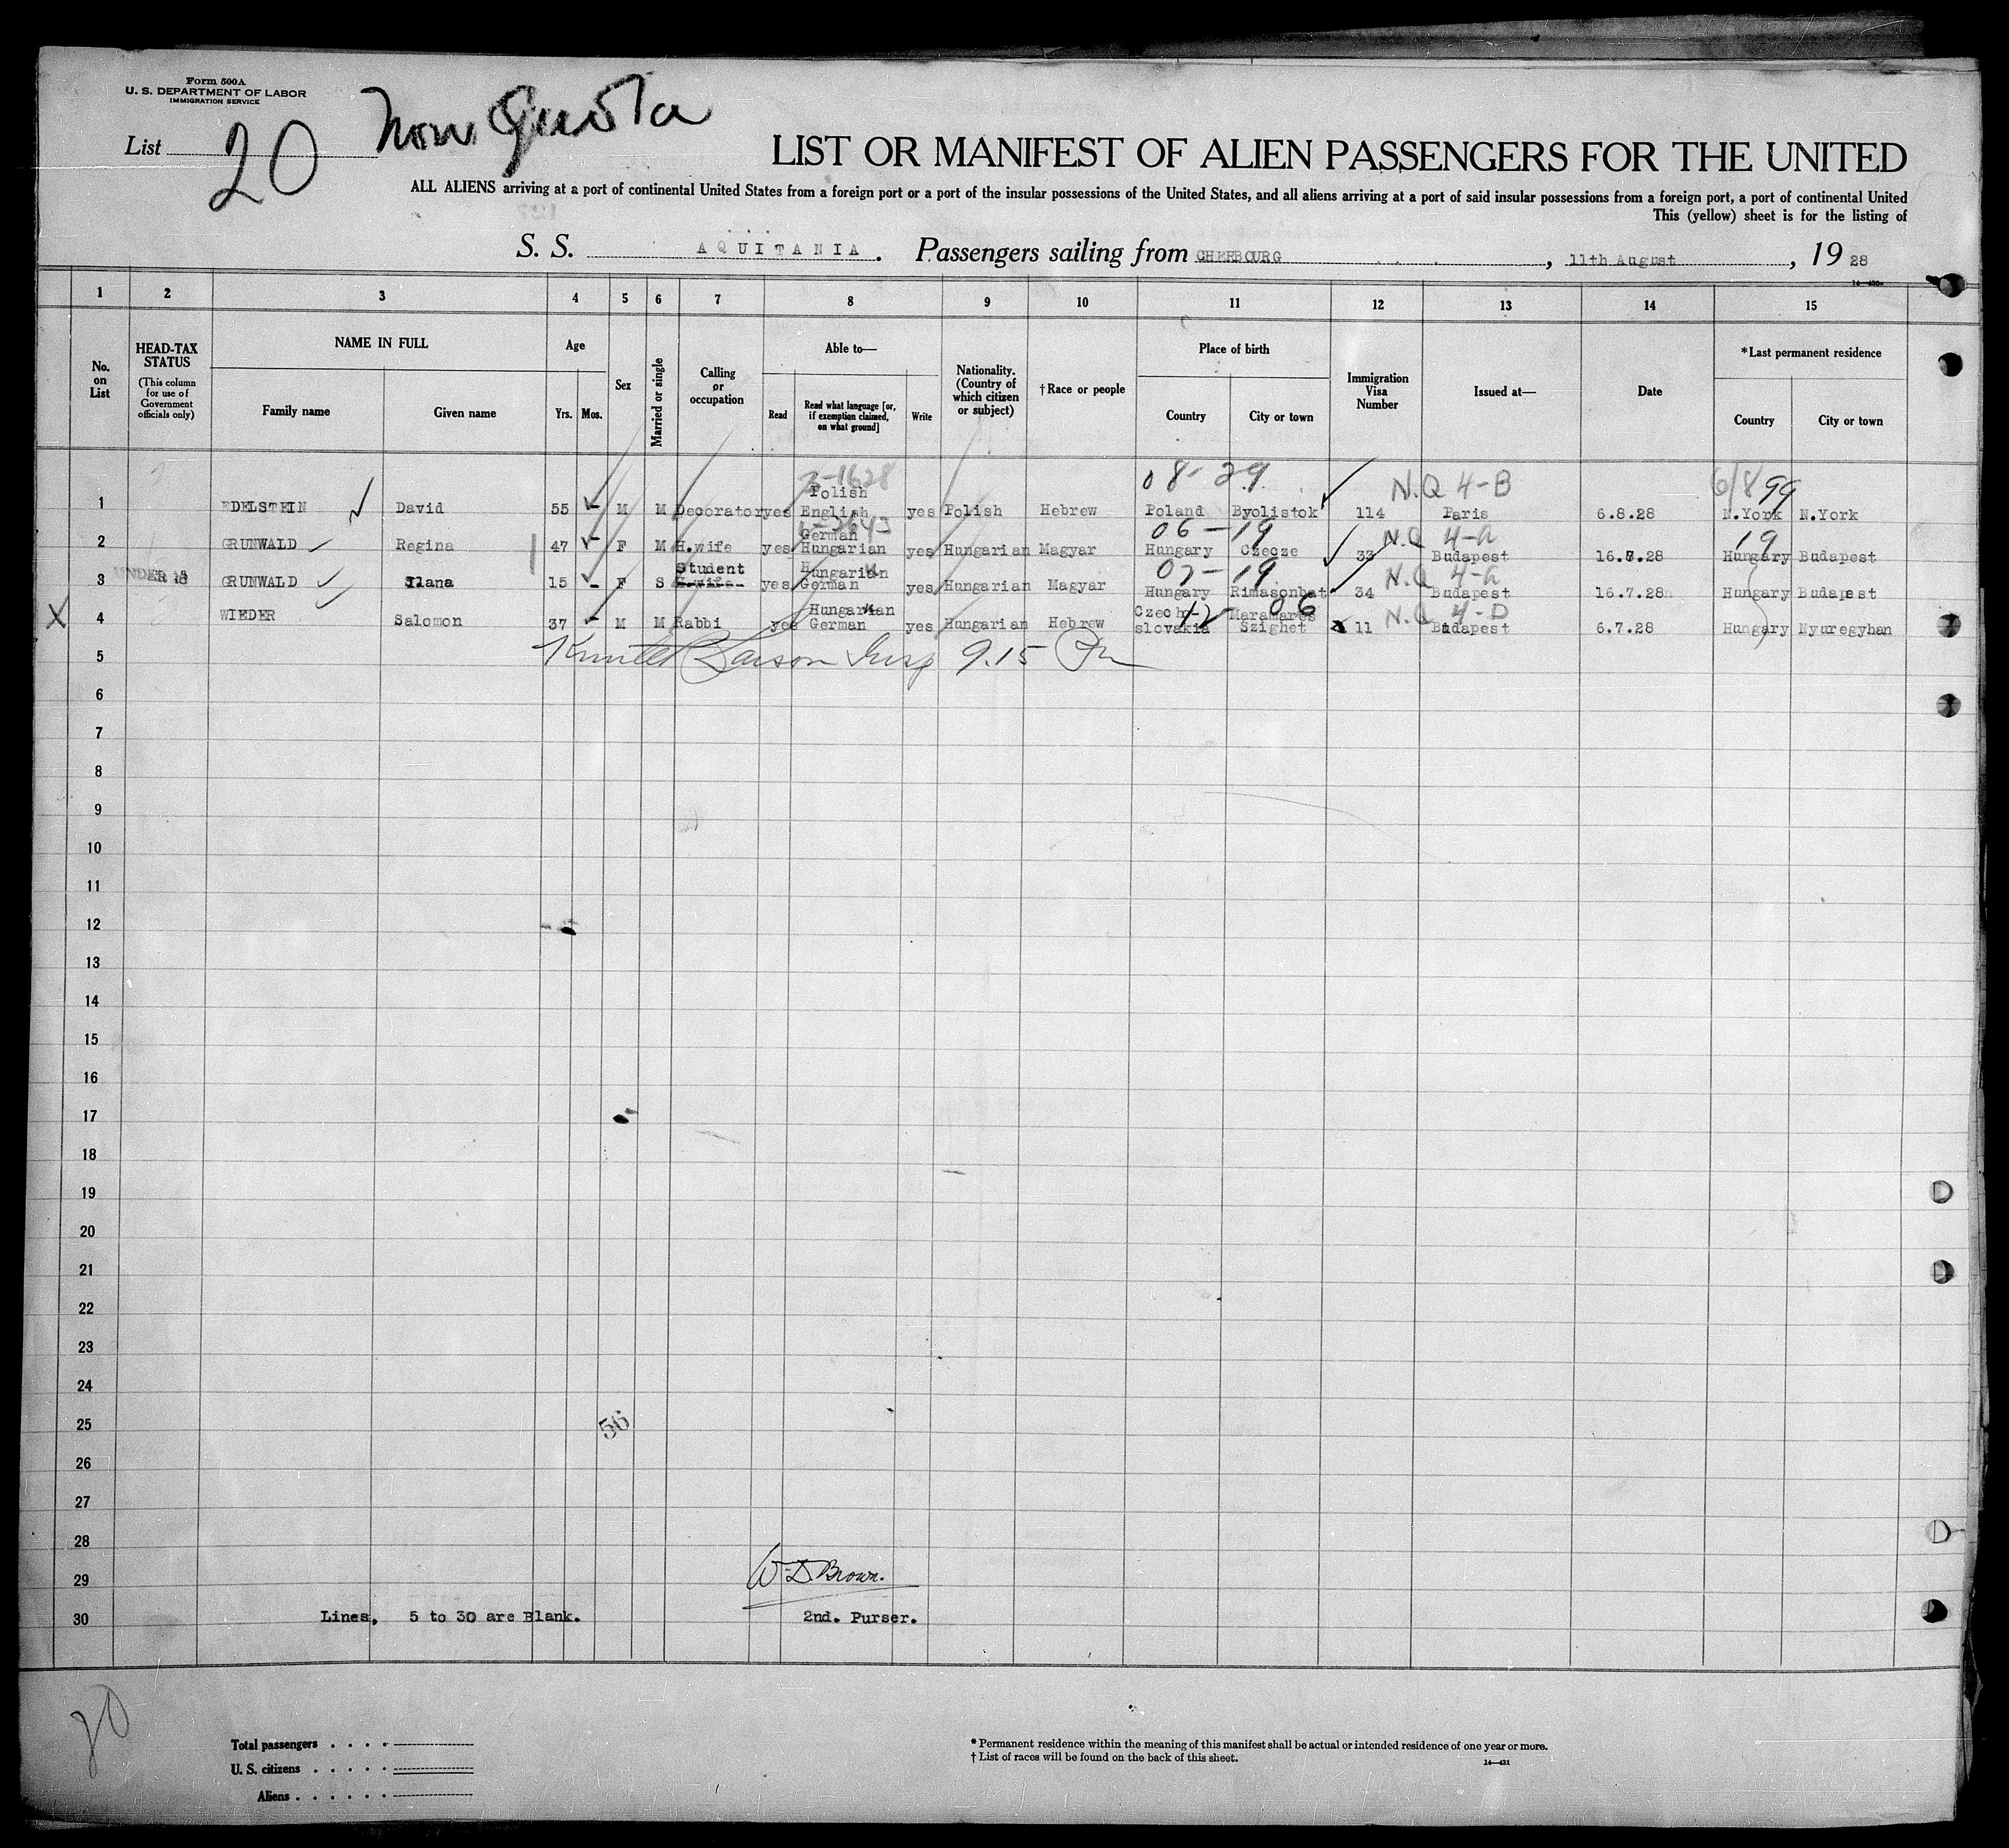 Form 500A
U. S. DEPARTMENT OF LABOR
IMMIGRATION SERVICE
List 20 Non Quota
LIST OR MANIFEST OF ALIEN PASSENGERS FOR THE UNITED
ALL ALIENS arriving at a port of continental United States from a foreign port or a port of the insular possessions of the United States, and all aliens arriving at a port of said insular possessions from a foreign port, a port of continental United
This (yellow) sheet is for the listing of
S. S. AQUITANIA. Passengers sailing from CHERBOURG, 11th August, 19 28
1 2 3 4 5 6 7 8 9 10 11 12 13 14 15
No. on List
HEAD-TAX STATUS
(This column for use of Government officials only)
NAME IN FULL
Family name Given name
Age
Yrs. Mos.
Sex
Married or single
Calling or occupation
Able to—
Read
Read what language [or, if exemption claimed, on what ground]
Write
Nationality. (Country of which citizen or subject)
†Race or people
Place of birth
Country City or town
Immigration Visa Number
Issued at—
Date
*Last permanent residence
Country City or town
08-29 N.Q 4-B 6/8 99
1 EDELSTEIN David 55 - M M Decorator yes Polish English yes Polish Hebrew Poland Byolistok 114 Paris 6.8.28 N.York N.York
06-19 N.Q 4-a 19
2 GRUNWALD Regina 47 - F M H.wife yes German Hungarian yes Hungarian Magyar Hungary Czecze 33 Budapest 16.7.28 Hungary Budapest
07-19 N.Q 4-a
3 UNDER 16 GRUNWALD Ilana 15 - F S Student H.wife yes Hungarian German yes Hungarian Magyar Hungary Rimasonbat 34 Budapest 16.7.28 Hungary Budapest
12 06 N.Q 4-D
X 4 WIEDER Salomon 37 - M M Rabbi yes Hungarian German yes Hungarian Hebrew Czecho-slovakia Maramaros Szighet x 11 Budapest 6.7.28 Hungary Nyuregyhan
5 Larson Insp 9.15 Pm
6
7
8
9
10
11
12
13
14
15
16
17
18
19
20
21
22
23
24
25 56
26
27
28
29 W D Brown.
30 Lines, 5 to 30 are Blank. 2nd. Purser.
20
Total passengers
U. S. citizens
Aliens
* Permanent residence within the meaning of this manifest shall be actual or intended residence of one year or more.
† List of races will be found on the back of this sheet.
14—431